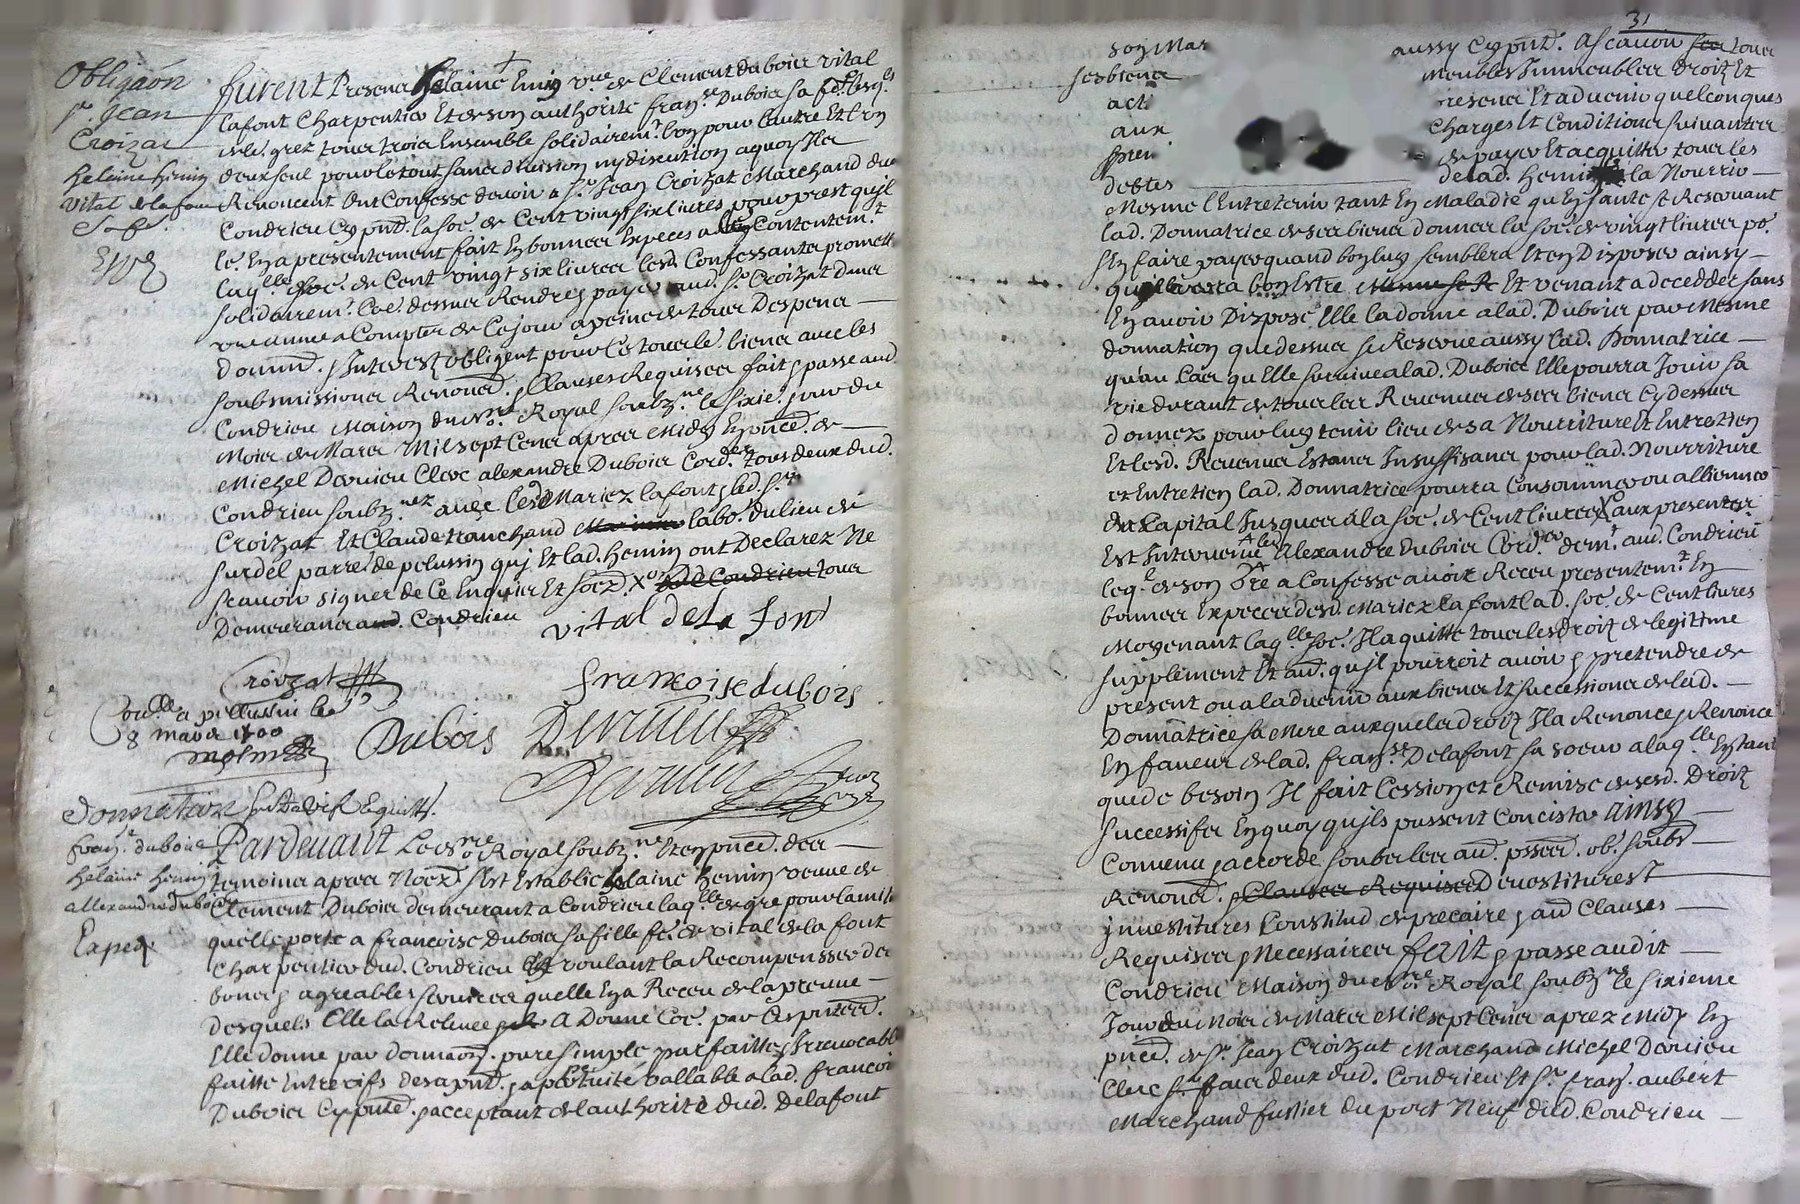 Obligaõn
Sr. Jean
Croizat
helaine hemin
vital delafont
Furent Presens helaine hemin vve. de Clement dubois vital
Lafont Charpentier Et de son authorité franç.se Dubois sa fe. lesq.ls
de le. grez tous trois Ensemble solidairemt. lun pour lautre Et lun
deux seul pour le tout sans division ny discution aquoy Ils
Renoncent Ont Confesse devoir a Sr. Jean Croizat Marchand dud.
Condrieu Cy pnt. la soe. de Cent vingt six livres pour prest quil
le. En a presentement fait En bonnes Especes a leur Contentemt.
Laq.lle soe. de Cent vingt six livres lesd. Confessants promett.
solidairemt. Coe. dessus Rendre & payer aud. Sr. Croizat dans
une année a Compter de Ce jour a peine de tous Despens
domm. & Interest obligent pour Ce tous le. biens avec les
soubmissions Renond. & Clauses Requises fait & passe aud.
Condrieu Maison du nore. Royal soubz.ne le sixie. jour du
Mois de Mars Mil sept Cens apres Midy En pnce. de
Michel Dervieu Clerc alexandre Dubois Cord.er tous deux dud.
Condrieu soubz.nez avec lesd Mariez lafont & led. Sr.
Croizat Et Claude tranchand labo. du lieu de
surdel parre. de pelussin quj Et lad. hemin ont Declarez Ne
scavoir signer de Ce Enquis Et soez. Xor aud Condrieu tous
Demeurants aud. Condrieu
vital de La font
Croizat
francoise dubois
Conlle a pellussin le
8 mars 1700
Dubois Dervieu
Donnation
franç. dubois
helaine hemin
allexandre dubois
Exped
Pardevant Le nore. Royal soubz.ne Et en pnce. des
temoins apres Noez. s'Est Establie helaine hemin veuve de
Clement Dubois demeurant a Condrieu laq.lle de gre pour lamitie
quelle porte a francoise Dubois sa fille fe. de vital de la font
Charpentier dud. Condrieu Et voulant la Recompensser des
bons & agreables services quelle En a Receu de la preuve
desquels Elle la Releve A Donne Coe. par Ces pntes.
Elle donne par donnaõn. pure simple parfaitte & Irrevocable
faitte Entre vifs des a pnt. & a perpetuité vallable a lad. francoise
Dubois Cy pnte. & acceptant de lauthorité dud. Delafont
31
son Mar aussy Cy pnt. A scavoir tous
ses biens meubles Immeubles droit Et
act resens Et advenir quelconques
aux Charges Et Conditions suivantes
prem de payer Et acquitter tous les
debtes de lad. hemin la Nourrir
Mesme l'Entretenir tant En Maladie qu'En sante se Reservant
lad. Donnatrice de ses biens donnes la soe. de vingt livres po.
s'En faire payer quand bon luy semblera Et en Disposer ainsy
quelle verra bon Estre Et venant a deceder sans
En avoir Disposé Elle la donne a lad. Dubois par Mesme
donnation que dessus se Reserve aussy lad. Donnatrice
qu'au Cas qu'Elle survive a lad. Dubois Elle pourra Jouir sa
vie durant de tous les Revenus de ses biens Cy dessus
donnez pour luy tenir lieu de sa Nourriture Et Entretien
Et lesd. Revenus Estans Insuffisans pour lad. Nourriture
et Entretien lad. Donnatrice pourra Consommer ou alliener
du Capital Jusques a la soe. de Cent livres aux presentes
Est Intervenu led alexandre Dubois Cord.er demt. aud. Condrieu
leq.l de son gre a Confesse avoir Receu presentemt. En
bonnes Especes desd. Mariez La font lad. soe. de Cent livres
Moyenant laq.lle soe. Il a quitte tous les droitz de legittme
supplement Et au. qu'jl pourroit avoir & pretendre de
present ou a ladvenir aux biens Et successions de lad.
Donnatrice sa Mere auxquels droitz Il a Renonce & Renonce
En faveur de lad. franç.se Delafont sa soeur a laq.lle Estant
que de besoin Il fait Cession et Remise de sesd. Droitz
successifs En quoy qu'jls pussent Concister ainsy
Convenu & accorde soubz les au. pssee. ob. soubz
Renond. & Clauses Requises Devestitures
jnvestitures Constitud de precaire & au Clauses
Requises & Necessaires fait & passe audit
Condrieu Maison du nore. Royal soubz.ne le sixieme
Jour du Mois de Mars Mil sept Cens aprez Midy En
pnce. de Sr. Jean Croizat Marchand Michel Dervieu
Clerc tous deux dud. Condrieu Et Sr. franç. aubert
Marchand fustier du port Neuf dud. Condrieu